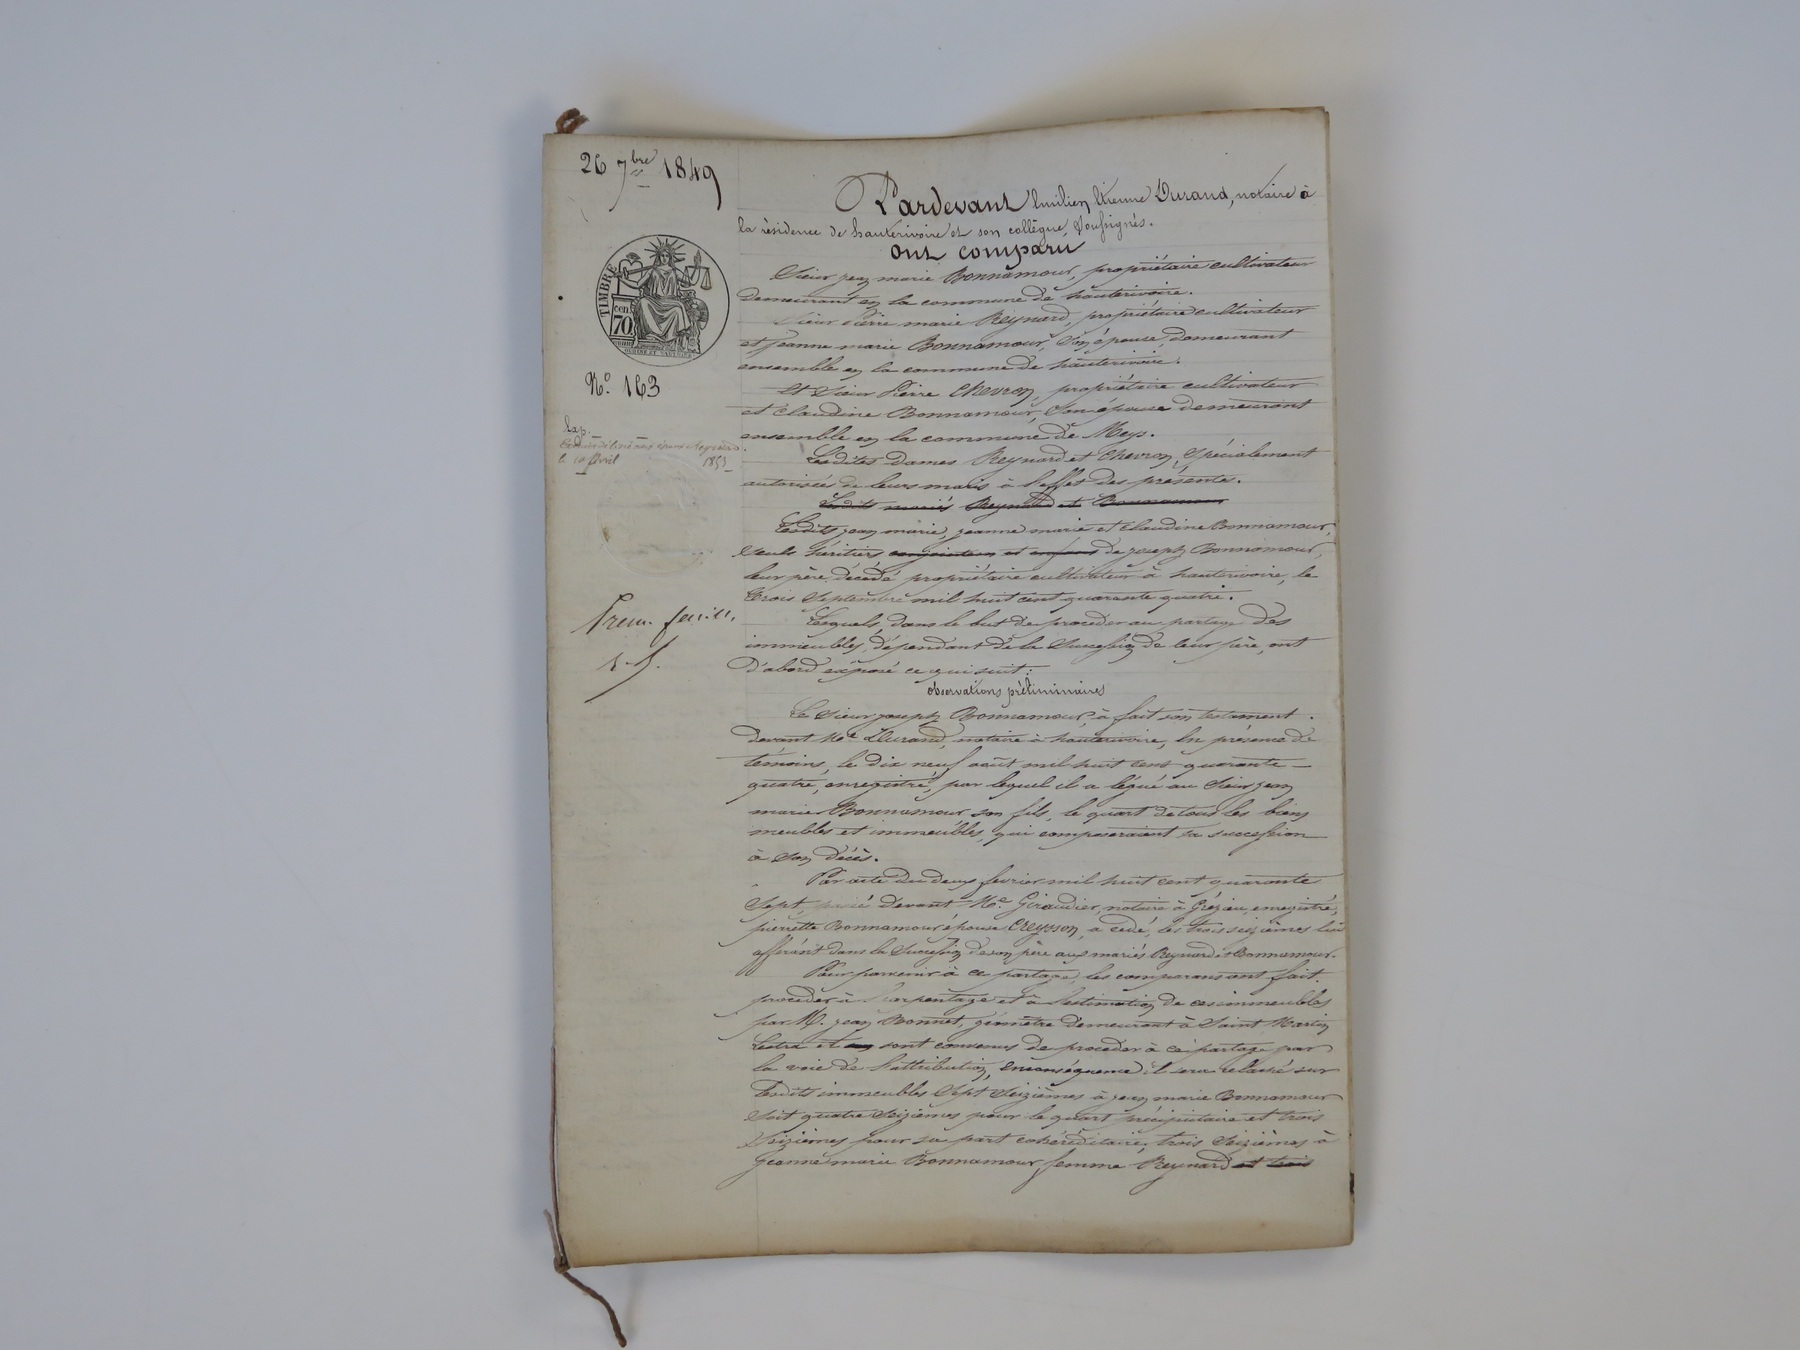 26 7bre 1849
Pardevant Émilien Étienne Durand, notaire à
la résidence de hauterivoire et son collègue, soussignés.
ont comparu
Sieur jean marie Bonnamour, propriétaire cultivateur
demeurant en la commune de hauterivoire.
Sieur Pierre marie Reynard, propriétaire cultivateur
et jeanne marie Bonnamour, son épouse, demeurant
ensemble en la commune de hauterivoire.
Et Sieur Pierre Chevron, propriétaire cultivateur
et Claudine Bonnamour, son épouse demeurant
ensemble en la commune de Meys.
Lesdites dames Reynard et Chevron, spécialement
autorisées de leurs maris à l'effet des présentes.
Lesdits mariés Reynard et Bonnamour
Lesdits jean marie, jeanne marie et Claudine Bonnamour,
seuls héritiers et de joseph Bonnamour,
leur père, décédé propriétaire cultivateur à hauterivoire, le
trois septembre mil huit cent quarante quatre.
Lesquels, dans le but de procéder au partage des
immeubles, dépendant de la succession de leur père, ont
d'abord exposé ce qui suit:
observations préliminaires
Le Sieur joseph Bonnamour, a fait son testament
devant Me Durand, notaire à hauterivoire, en présence de
témoins, le dix neuf août mil huit cent quarante
quatre, enregistré, par lequel il a légué au Sieur jean
marie Bonnamour son fils, le quart de tous les biens
meubles et immeubles, qui composeraient sa succession
à son décès.
Par acte du deux février mil huit cent quarante
sept, passé devant Me Giraudier, notaire à Grézieu, enregistré,
pierrette Bonnamour épouse Creysson, a cédé, les trois seizièmes lui
afférant dans la succession de son père aux mariés Reynard et Bonnamour.
Pour parvenir à ce partage, les comparans ont fait
procéder à l'arpentage et à l'estimation de ces immeubles
par M. jean Bonnet, géomètre demeurant à Saint Martin
Lestra et sont convenus de procéder à ce partage par
la voie de l'attribution, en conséquence il sera relaché sur
lesdits immeubles sept seizièmes à jean marie Bonnamour
soit quatre seizièmes pour le quart préciputaire et trois
seizièmes pour sa part cohéréditaire, trois seizièmes à
jeanne marie Bonnamour, femme Reynard et trois
TIMBRE
cen
70
No. 163
le 10 avril 1851